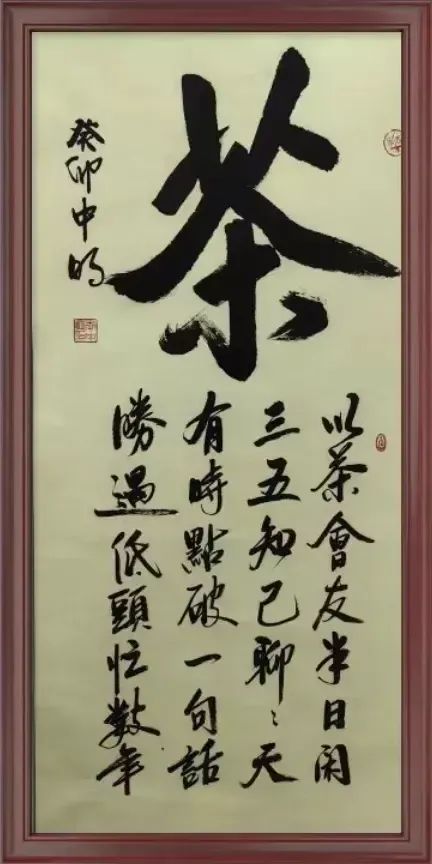 茶
以茶會友半日闲
三五知己聊〻天
有時點破一句話
勝過低頭忙數年
癸卯中明